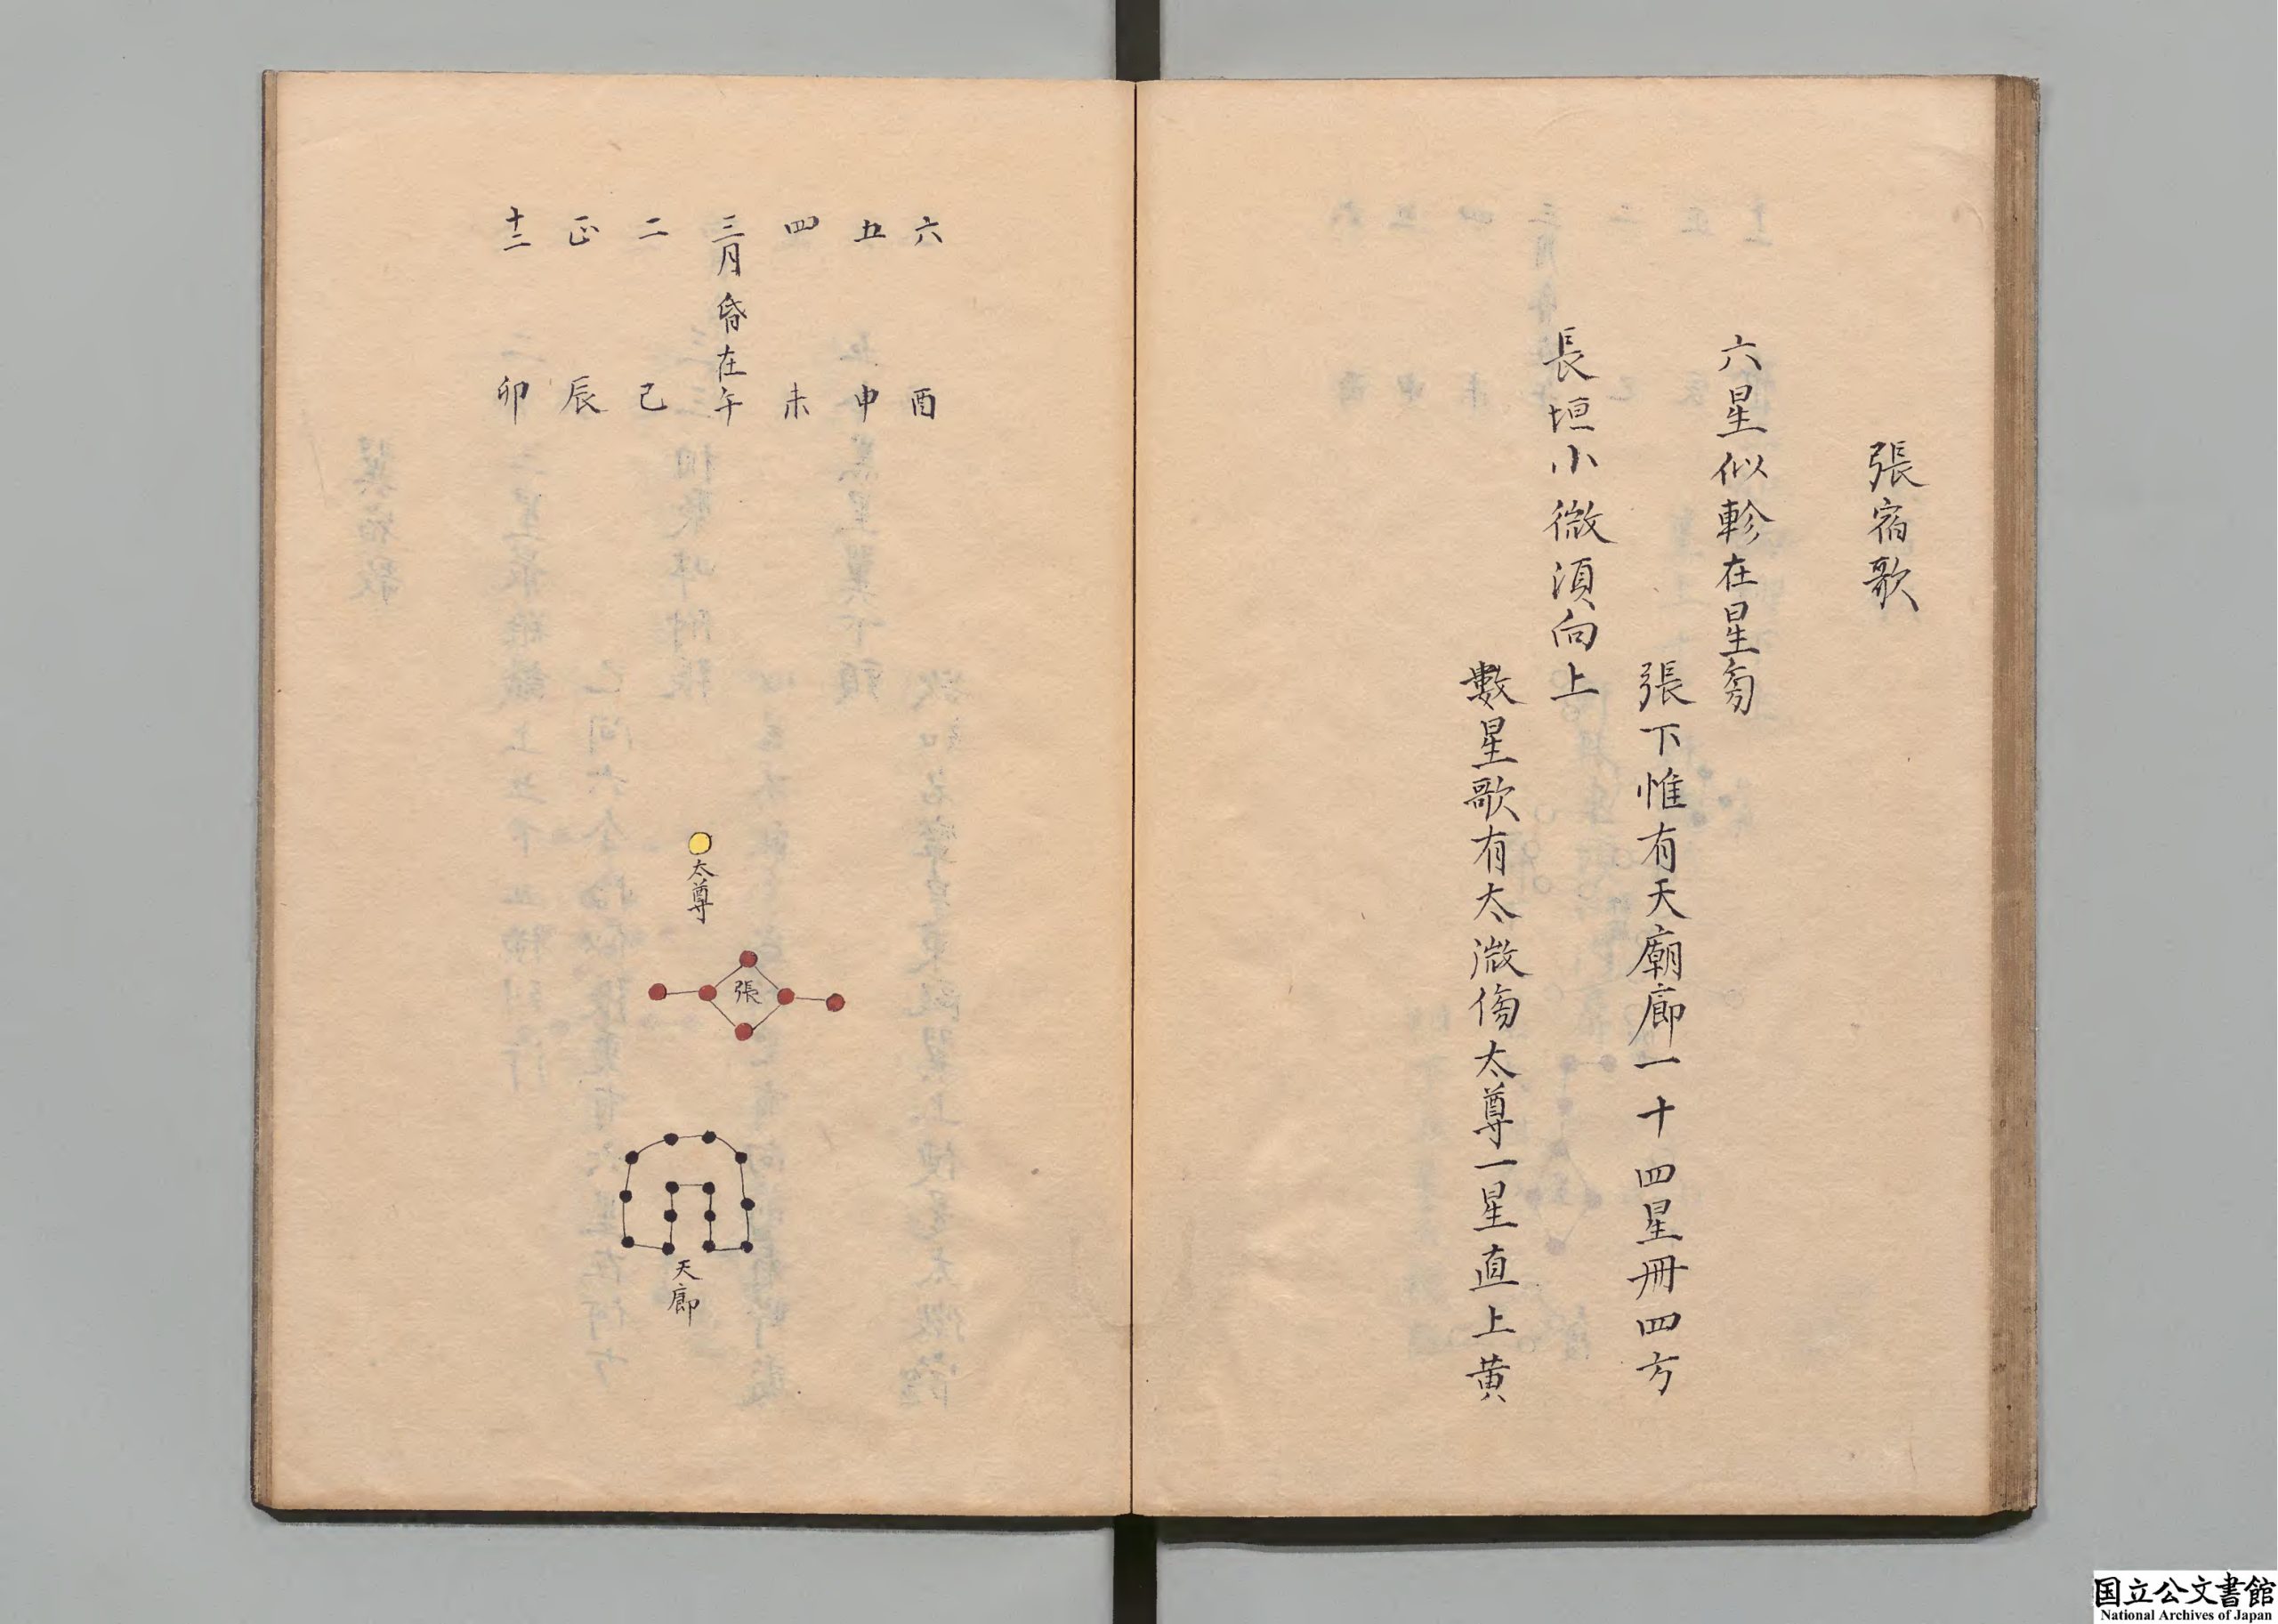 張宿歌
六星似軫在星旁
張下惟有天廟廊一十四星冊四方
長垣小微湏向上
數星歌有太微傍太尊一星直上黄
六 酉
五 申
四 未
三月昏在午
二 巳
正 辰
十二 卯
太尊
張
天廊
国立公文書館
National Archives of Japan